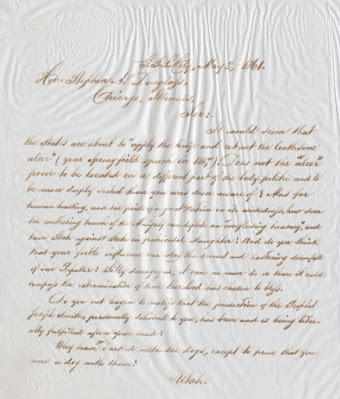 G. S. L. City, May 2, 1861.
Hon. Stephen A. Douglas,
Chicago, Illinois,
Sir:-
It would seem that
the States are about to "apply the knife and cut out the loathsome
ulcer" (your Springfield speech in 1857). Does not the "ulcer"
prove to be located in a different part of the body politic and to
be more deeply seated than you was then aware of? Alas for
human boasting, and the pride of a great Nation in its weakness, how soon
the withering touch of the Almighty can deplete an overflowing treasury, and
turn State against State in fratricidal slaughter! And do you think
that your feeble influence can stay the decreed and hastening downfall
of our Republic? Silly demagogue, it can no more do so than it could
compass the extermination of those the Lord has chosen to bless.
Do you not begin to realize that the prediction of the Prophet
Joseph Smith, personally delivered to you, has been and is being liter-
ally fulfilled upon your head?
Why have you barked with the dogs, except to prove that you
were a dog with them?
Utah.